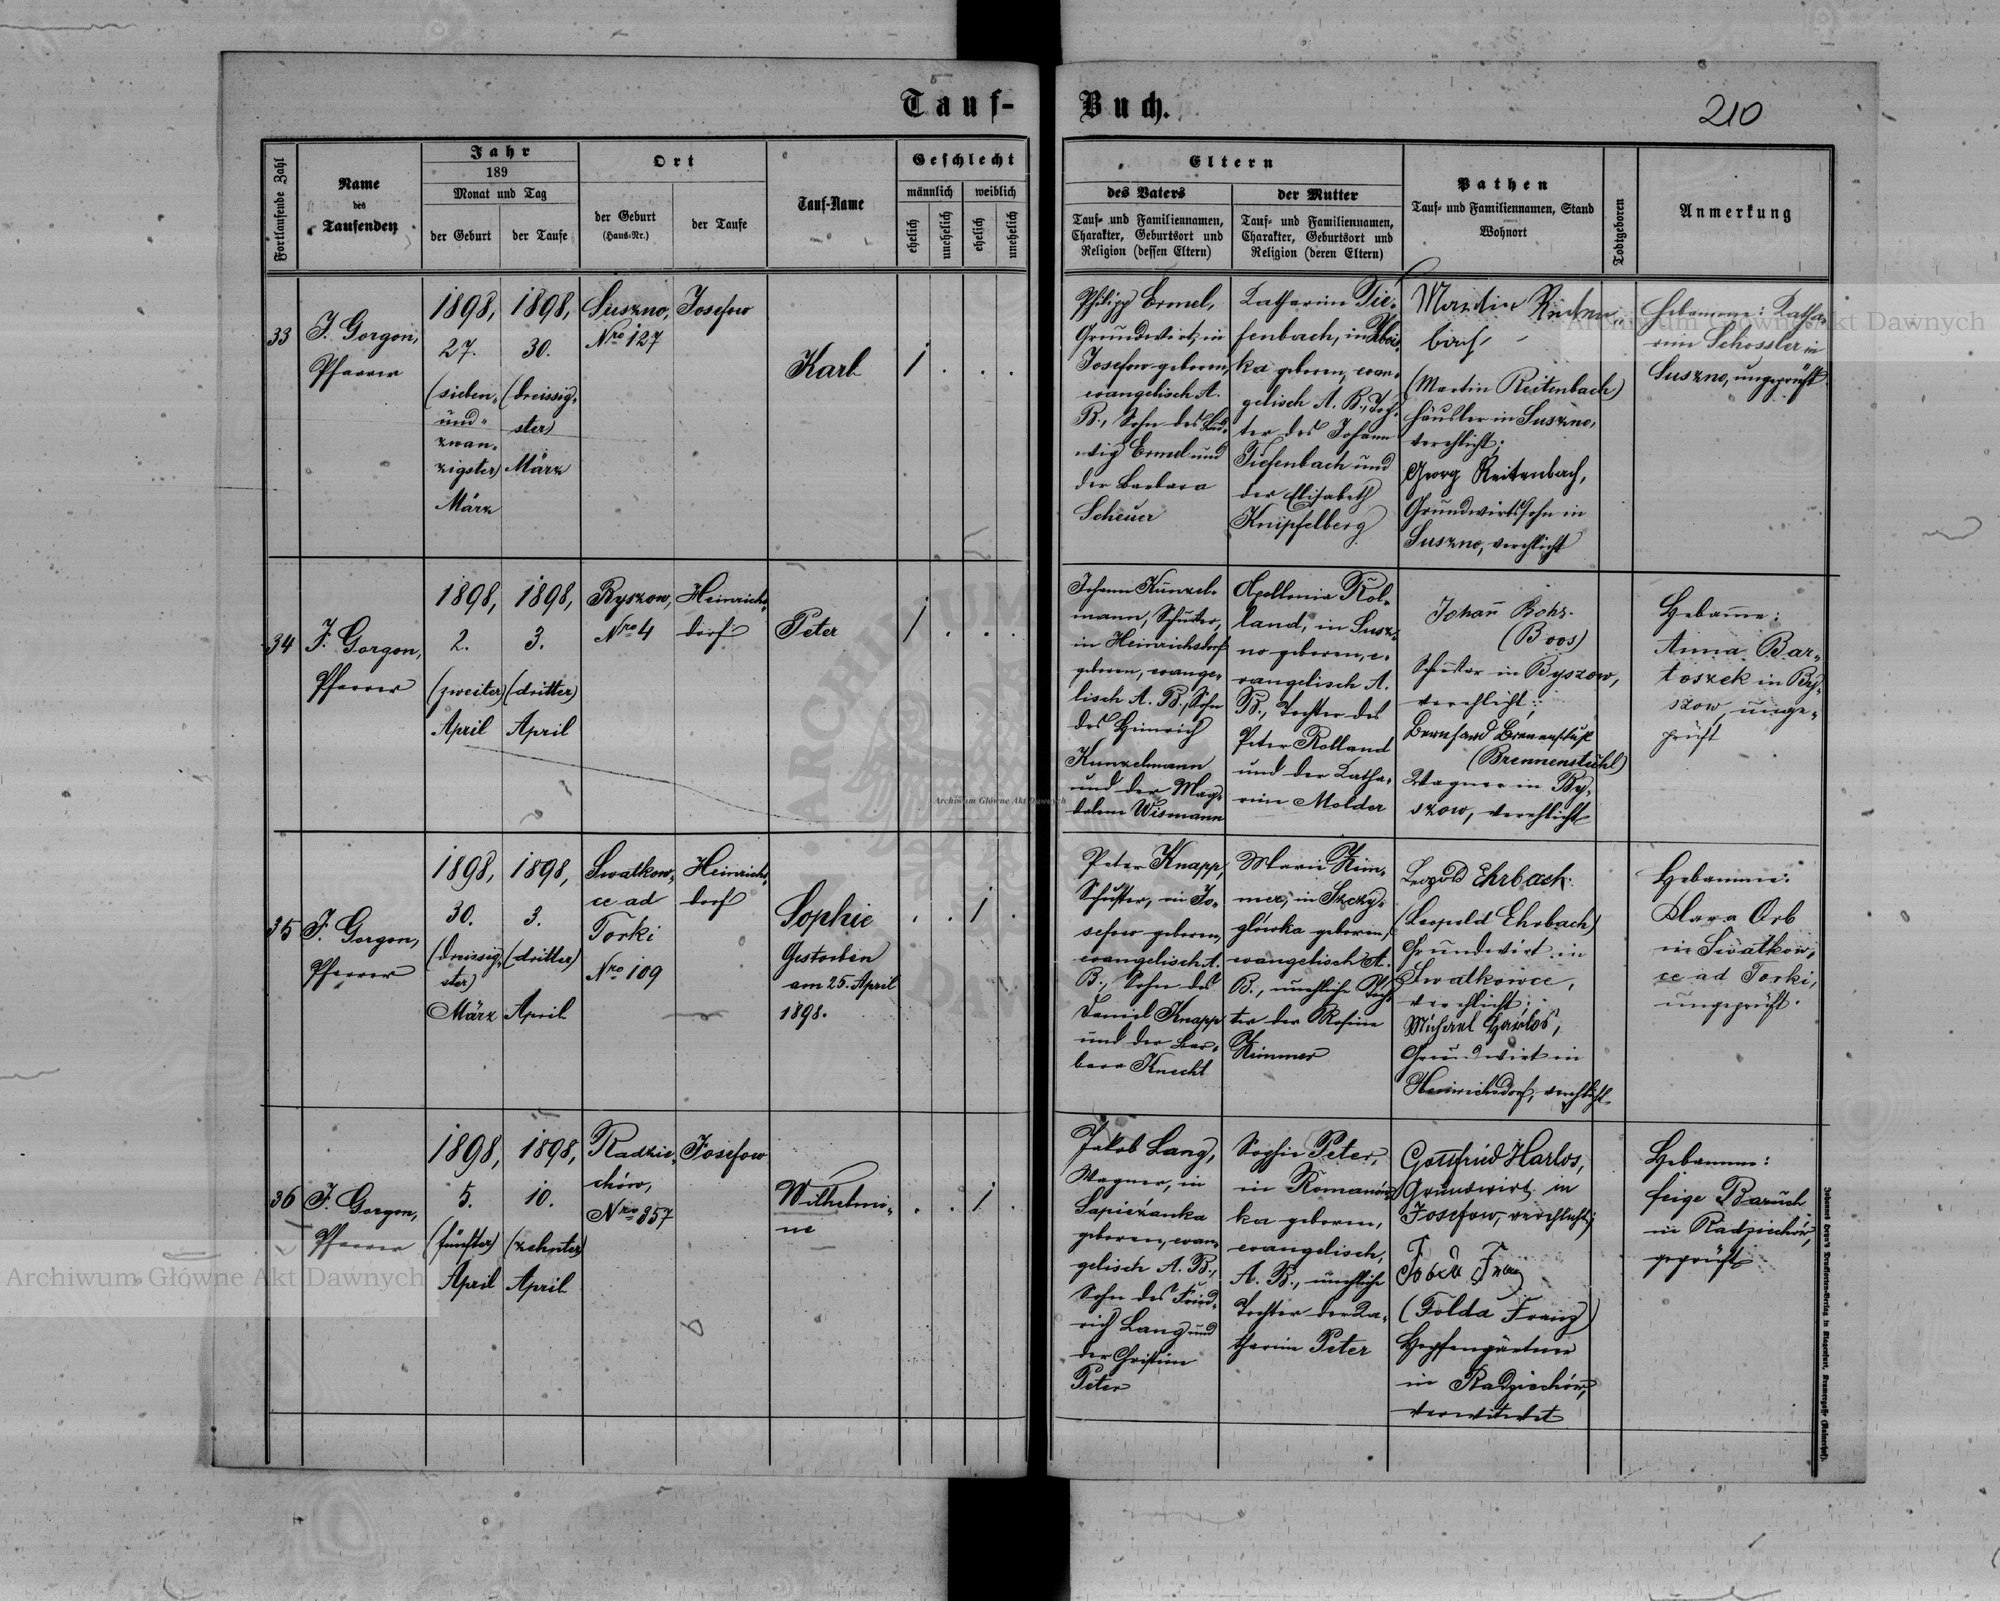 Tauf-
Buch.
210
Fortlaufende Zahl
Name
des
Taufenden
Jahr
189
Monat und Tag
der Geburt
der Taufe
Ort
der Geburt
(Haus-Nr.)
der Taufe
Tauf-Name
Geschlecht
männlich
weiblich
ehelich
unehelich
ehelich
unehelich
Eltern
des Vaters
Tauf- und Familiennamen,
Charakter, Geburtsort und
Religion (dessen Eltern)
der Mutter
Tauf- und Familiennamen,
Charakter, Geburtsort und
Religion (deren Eltern)
Pathen
Tauf- und Familiennamen, Stand
Wohnort
Todtgeboren
Anmerkung
33
F. Gorgon,
Pfarrer
1898,
27.
(sieben-
und-
zwan-
zigster)
März
1898,
30.
(dreissig-
ster)
März
Suszno,
Nro 127
Josefow
Karl
Philipp Ermel,
Grundwirt, in
Josefow geboren,
evangelisch A.
B., Sohn des Lud-
wig Ermel und
der Barbara
Scheuer
Katharina Tie-
fenbach, in
ka geboren, evan-
gelisch A. B., Toch-
ter des Johann
Tiefenbach und
der Elisabeth
Knipfelberg
Martin Reiten-
bach
(Martin Reitenbach)
Häusler in Suszno,
verehlicht;
Georg Reitenbach,
Grundwirtssohn in
Suszno, verehlicht
Hebamme: Katha-
rina Schossler in
Suszno, ungeprüft
34
F. Gorgon,
Pfarrer
1898,
2.
(zweiter)
April
1898,
3.
(dritter)
April
Byszow,
Nro 4
Heinrichs-
dorf
Peter
Johann Kunzel-
mann, Schuster,
in Heinrichsdorf
geboren, evange-
lisch A. B., Sohn
des Heinrich
Kunzelmann
und der Mag-
dalena Wismann
Apollonia Rol-
land, in Susz-
no geboren, e-
vangelisch A.
B., Tochter des
Peter Rolland
und der Katha-
rina Molder
Johann Bohs.
(Boos)
Schuster in Byszow,
verehlicht;
Bernhard Brennenstuhl
(Brennenstuhl)
Wagner in By-
szow, verehlicht
Hebamme:
Anna Bar-
toszek in By-
szow, unge-
prüft
35
F. Gorgon,
Pfarrer
1898,
30.
(dreissig-
ster)
März
1898,
3.
(dritter)
April
Swatkow-
ce ad
Torki
Nro 109
Heinrichs-
dorf
Sophie
Gestorben
am 25. April
1898.
Peter Knapp,
Schuster, in Jo-
sefow geboren,
evangelisch A.
B., Sohn des
Daniel Knapp
und der Bar-
bara Knecht
Maria Zim-
mer, in Szczy-
główka geboren,
evangelisch A.
B., uneheliche Toch-
ter der Rosina
Zimmer
Leopold Ehrbach.
(Leopold Ehrbach)
Grundwirt in
Swatkowce,
verehlicht;
Michael Harlos,
Grundwirt in
Heinrichsdorf, verehlicht
Hebamme:
Klara Orb
in Swatkow-
ce ad Torki,
ungeprüft.
36
F. Gorgon,
Pfarrer
1898,
5.
(fünfter)
April
1898,
10.
(zehnter)
April
Radzie-
chów,
Nro 357
Josefow
Wilhelmi-
ne
Jakob Lang,
Wagner, in
Sapieżanka
geboren, evan-
gelisch A. B.,
Sohn des Fried-
rich Lang und
der Christina
Peter
Sophie Peter,
in Romanów-
ka geboren,
evangelisch,
A. B., uneheliche
Tochter der Ka-
tharina Peter
Gottfried Harlos,
Grundwirt in
Josefow, verehlicht;
(Folda Franz)
Hopfengärtner
in Radziechów,
verwitwet
Hebamme:
Feige Baruch
in Radziechów,
geprüft
Archiwum Główne Akt Dawnych
Archiwum Główne Akt Dawnych
Archiwum Główne Akt Dawnych